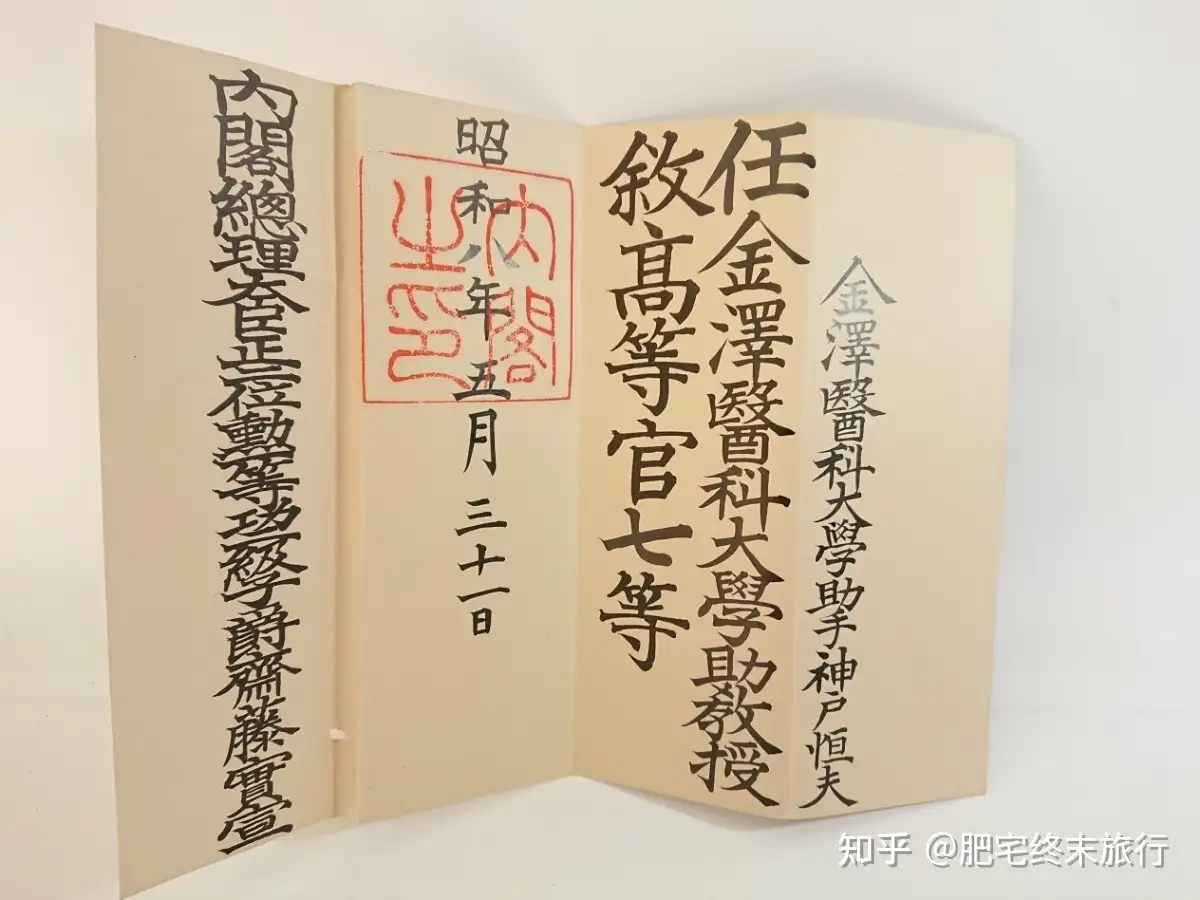 金澤醫科大學助手神戶恒夫
任金澤醫科大學助敎授
敘髙等官七等
昭和八年五月三十一日
內閣之印
內閣總理大臣正二位勳一等功二級子爵齋藤實宣
知乎 @肥宅终末旅行